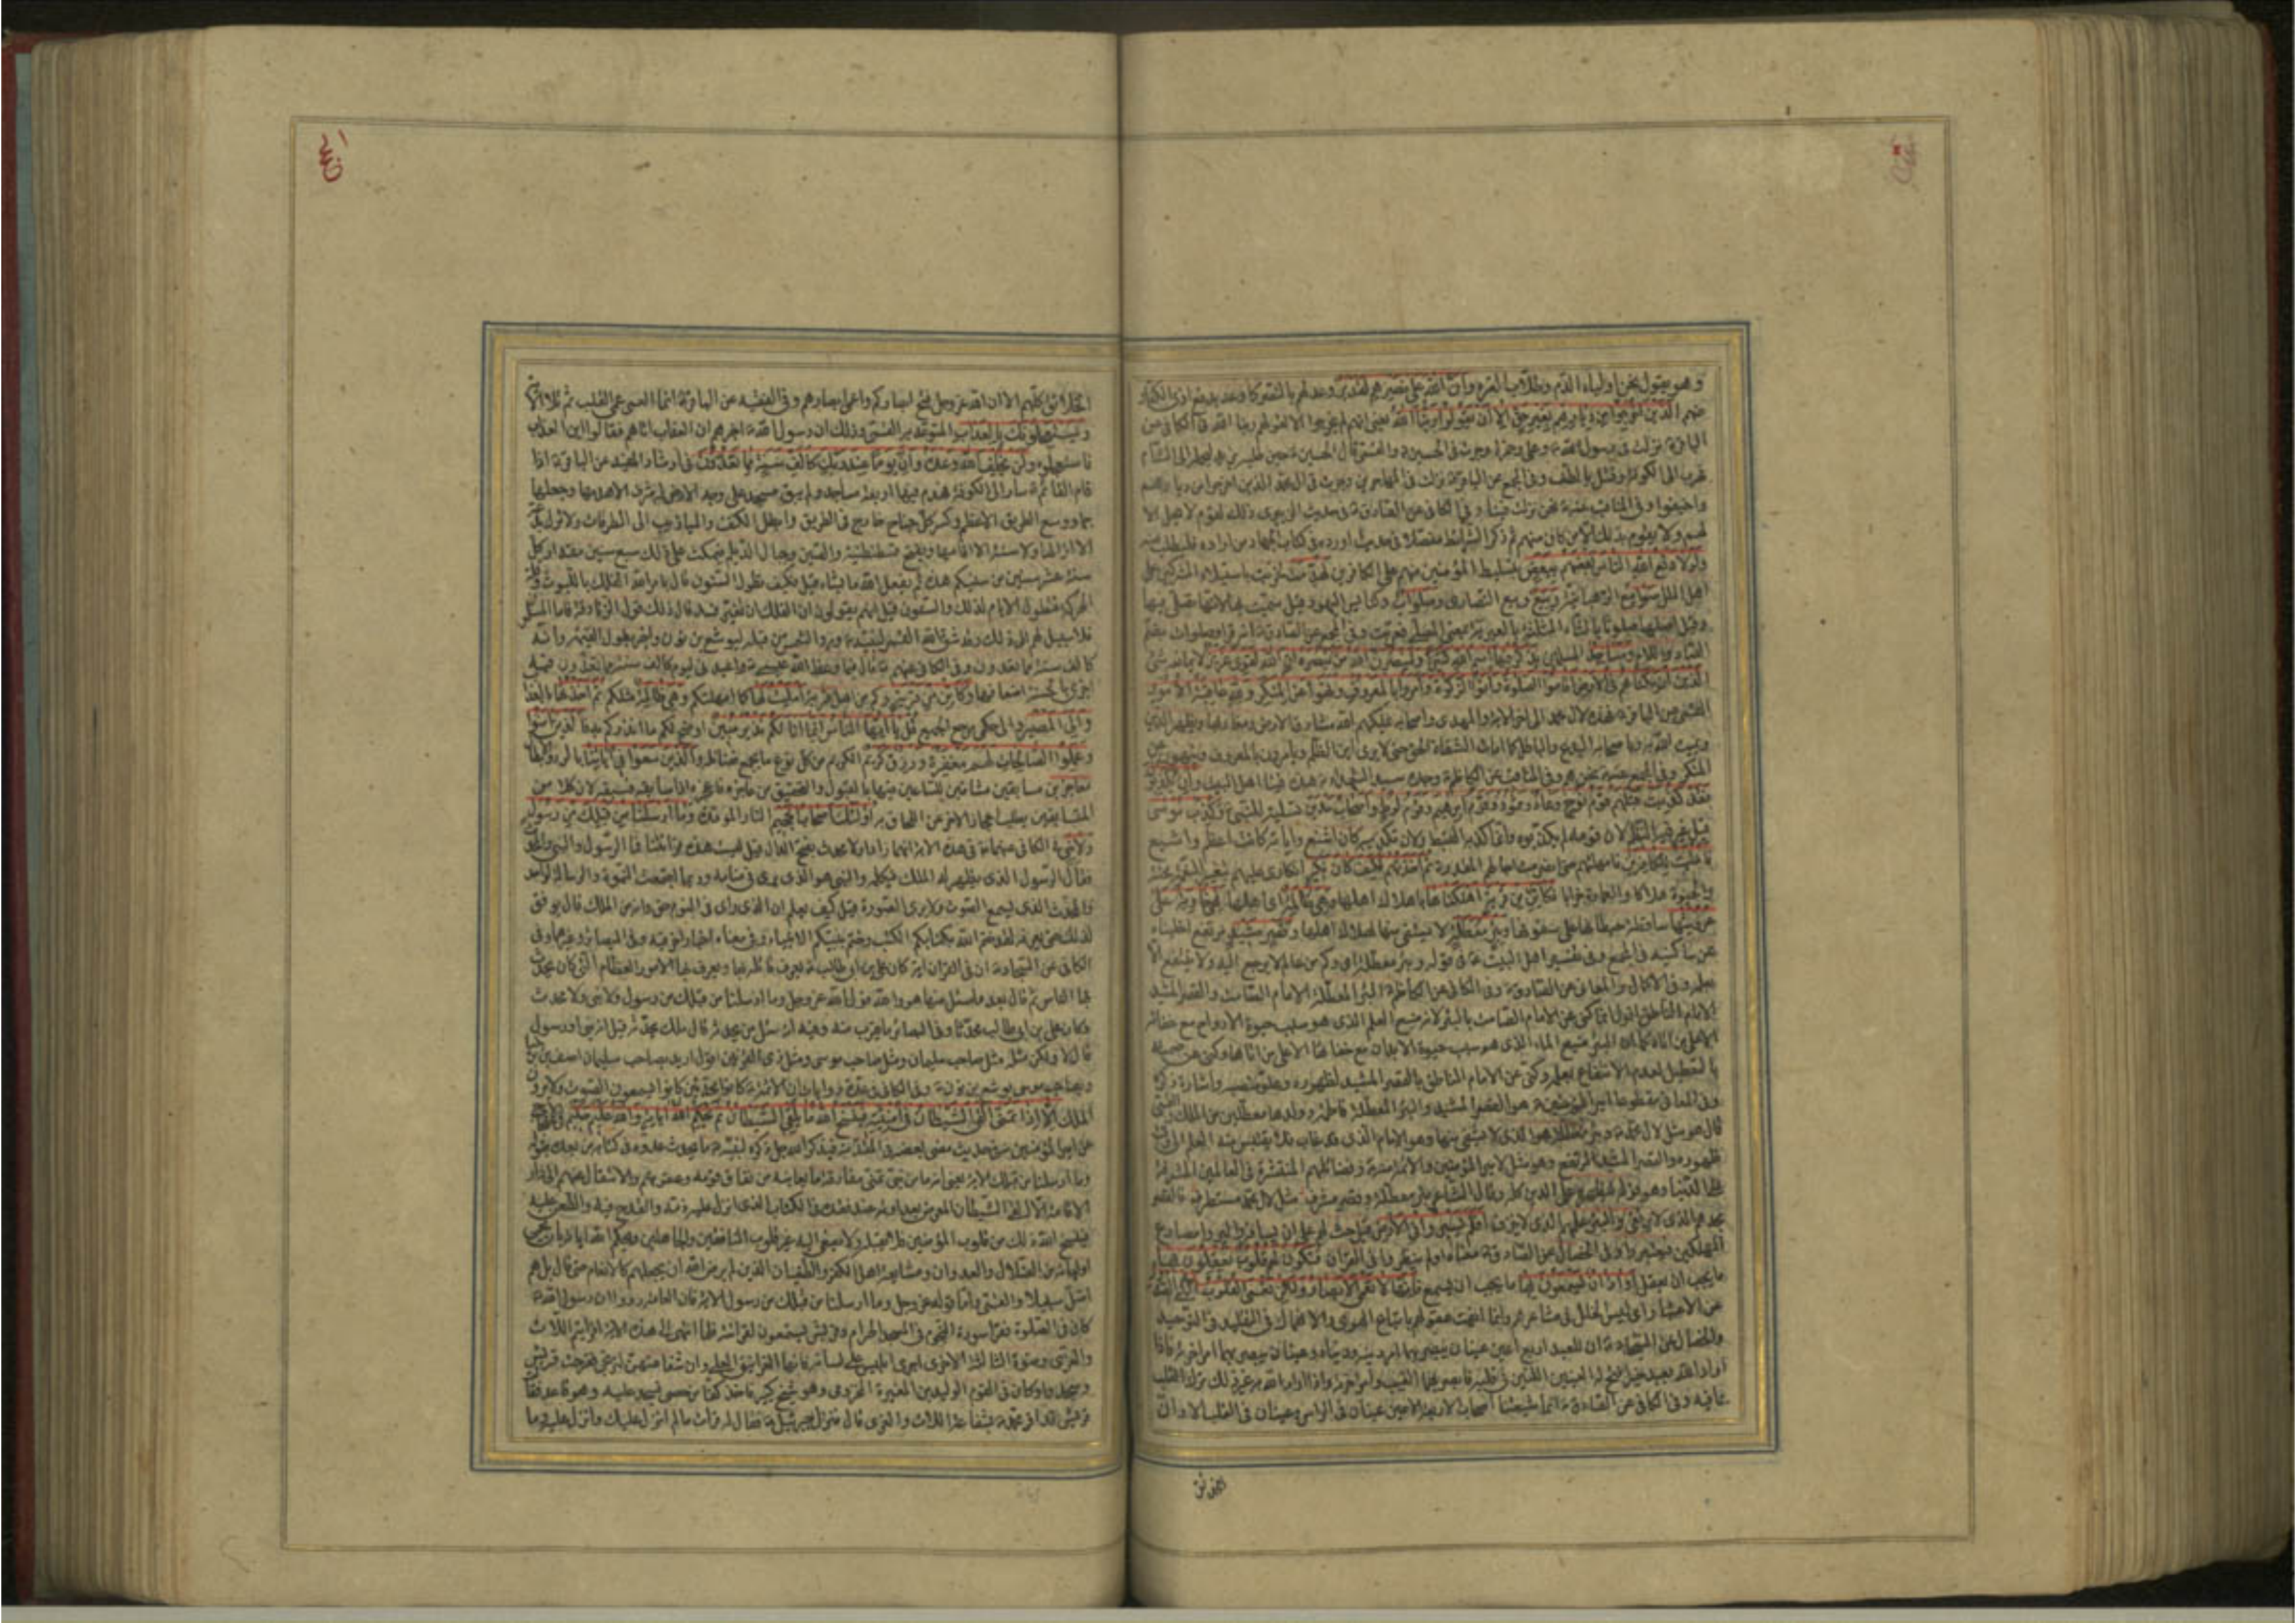 وهو يقول نحن اولياء الدم وطلاب الترة وان الله على نصرهم لقدير وعد لهم بالنصر كما وعد بدفع اذى الكفار
عنهم الذين اخرجوا من ديارهم بغير حق الا ان يقولوا ربنا الله يعني انهم لم يخرجوا الا لقولهم ربنا الله في الكافي عن
الباقر نزلت في رسول الله وعلي وحمزة وجرت في الحسين والقمي قال الحسين حين طلبه يزيد ليحمله الى الشام
فهرب الى الكوفة وقتل بالطف وفي المجمع عن الباقر نزلت في المهاجرين وجرت في آل محمد الذين اخرجوا من ديارهم
واخيفوا وفي المناقب عنه نحن نزلت فينا وفي الكافي عن الصادق في حديث
لهم ولا يقوم بذلك الا من كان منهم ثم ذكر الشرائط مفصلا في حديث اورده في كتاب الجهاد من اراده فليطلب منه
ولولا دفع الله الناس بعضهم ببعض بتسليط المؤمنين منهم على الكافرين لهدمت لخربت باستيلاء المشركين على
اهل الملل صوامع الرهبانية وبيع وبيع النصارى وصلوات وكنايس اليهود قيل سميت بها لانها تصلى فيها
وقيل اصلها صلوثا بالثاء المثلثة بالعبرية بمعنى المصلى فعربت وفي المجمع عن الصادق انه قرأ وصلوات بضم
الصاد واللام ومساجد المسلمين يذكر فيها اسم الله كثيرا ولينصرن الله من ينصره ان الله لقوي عزيز لا يمانعه شئ
الذين ان مكناهم في الارض اقاموا الصلوة وآتوا الزكوة وامروا بالمعروف ونهوا عن المنكر ولله عاقبة الامور
القمي عن الباقر فهذه لآل محمد الى آخر الآية والمهدي واصحابه يملكهم الله مشارق الارض ومغاربها ويظهر الدين
ويميت الله به وباصحابه البدع والباطل كما امات الشقاة الحق حتى لا يرى اين الظلم ويأمرون بالمعروف وينهون عن
المنكر وفي المجمع عنه نحن هم وفي المناقب عن الكاظم وجده سيد الشهداء هذه فينا اهل البيت وان يكذبوك
فقد كذبت قبلهم قوم نوح وعاد وثمود وقوم ابرهيم وقوم لوط واصحاب مدين تسلية للنبي وكذب موسى
قيل غير فيه النظم لان قومه لم يكذبوه وانما كذبه القبط ولان تكذيبه كان اشنع وآياته كانت اعظم واشيع
فامليت للكافرين فامهلتهم حتى انصرمت آجالهم المقدرة ثم اخذتهم فكيف كان نكير انكاري عليهم بتغيير النعمة محنة
والحيوة هلاكا والعمارة خرابا فكأين من قرية اهلكناها باهلاك اهلها وهي ظالمة اي اهلها فهي خاوية على
عروشها ساقطة حيطانها على سقوفها وبئر معطلة لا يستقى منها لهلاك اهلها وقصر مشيد مرتفع اخليناه
عن ساكنيه في المجمع وفي تفسير اهل البيت في قوله وبئر معطلة اي وكم من عالم لا يرجع اليه ولا ينتفع
بعلمه وفي الاكمال والمعاني عن الصادق وفي الكافي عن الكاظم البئر المعطلة الامام الصامت والقصر المشيد
الامام الناطق اقول انما كنى عن الامام الصامت بالبئر لانه منبع العلم الذي هو سبب حيوة الارواح مع خفائه
الا على من اتاه كما ان البئر منبع الماء الذي هو سبب حيوة الابدان مع خفائها الا على من اتاها وكنى عن صمته
بالتعطيل لعدم الانتفاع بعلمه وكنى عن الامام الناطق بالقصر المشيد لظهوره وعلو منصبه واشادة ذكره
وفي المعاني مقطوعا امير المؤمنين هو القصر المشيد والبئر المعطلة فاطمة وولدها معطلين من الملك والقمي
قال هو مثل لآل محمد وبئر معطلة هو الذي لا يستقى منها وهو الامام الذي قد غاب فلا يقتبس منه العلم الى وقت
ظهوره والقصر المشيد المرتفع وهو مثل لامير المؤمنين والائمة وفضائلهم المنتشرة في العالمين المشرفة
على الدنيا وهو قوله ليظهره على الدين كله وقال الشاعر بئر معطلة وقصر مشرف مثل لآل محمد مستطرف فالقصر
مجدهم الذي لا يرتقى والبئر علمهم الذي لا ينزف افلم يسيروا في الارض حث لهم على ان يسافروا ليروا مصارع
المهلكين فيعتبروا وفي الخصال عن الصادق معناه اولم ينظروا في القران فتكون لهم قلوب يعقلون بها
ما يجب ان يعقل او آذان يسمعون بها ما يجب ان يسمع فانها لا تعمى الابصار ولكن تعمى القلوب التي في الصدور
عن الاعتبار اي ليس الخلل في مشاعرهم وانما ايفت عقولهم باتباع الهوى والانهماك في التقليد في التوحيد
والخصال عن السجاد ان للعبد اربع اعين عينان يبصر بهما امر دينه ودنياه وعينان يبصر بهما امر آخرته فاذا
اراد الله بعبد خيرا فتح له العينين اللتين في قلبه فابصر بهما الغيب وامر آخرته واذا اراد الله به غير ذلك ترك القلب
بما فيه وفي الكافي عن الصادق انما شيعتنا اصحاب الاربعة الاعين عينان في الراس وعينان في القلب الا وان
الخلائق
الخلائق كلهم الا ان الله عز وجل فتح ابصاركم واعمى ابصارهم وفي الفقيه عن الباقر انما العمى عمى القلب ثم تلا الآية
ويستعجلونك بالعذاب المتوعد به القمي وذلك ان رسول الله اخبرهم ان العذاب اتاهم فقالوا اين العذاب
فاستعجلوه ولن يخلف الله وعده وان يوما عند ربك كالف سنة مما تعدون في ارشاد المفيد عن الباقر اذا
قام القائم سار الى الكوفة فهدم فيها اربعة مساجد ولم يبق مسجد على وجه الارض له شرف الا هدمها وجعلها
جما ووسع الطريق الاعظم وكسر كل جناح خارج في الطريق وابطل الكنف والميازيب الى الطرقات ولا ترك بدعة
الا ازالها ولا سنة الا اقامها ويفتح قسطنطنية والصين وجبال الديلم فيمكث على ذلك سبع سنين مقدار كل
سنة عشر سنين من سنيكم هذه ثم يفعل الله ما يشاء قيل فكيف تطول السنون قال يامر الله الفلك باللبوث وقلة
الحركة فتطول الايام لذلك والسنون قيل انهم يقولون ان الفلك ان تغير فسد قال ذلك قول الزنادقة فاما المسلمون
فلا سبيل لهم الى ذلك وقد شق الله القمر لنبيه ورد الشمس من قبله ليوشع بن نون واخبر بطول القيمة وانه
كالف سنة مما تعدون وفي الكافي عنهم قال فيما وعظ الله عيسى واعبدني ليوم كالف سنة مما تعدون فيه
اجزي بالحسنة اضعافها وكأين من قرية وكم من اهل قرية امليت لها كما امهلتكم وهي ظالمة مثلكم ثم اخذتها بالعذاب
والي المصير والى حكمي مرجع الجميع قل يا ايها الناس انما انا لكم نذير مبين اوضح لكم ما انذركم به فالذين آمنوا
وعملوا الصالحات لهم مغفرة ورزق كريم الكريم من كل نوع ما يجمع فضائله والذين سعوا في آياتنا بالرد والابطال
معاجزين مسابقين مشاقين للساعين فيها بالقبول والتحقيق من عاجزه فاعجزه اذا سابقه فسبقه لان كلا من
المتسابقين يطلب اعجاز الآخر عن اللحاق به اولئك اصحاب الجحيم النار الموقدة وما ارسلنا من قبلك من رسول
ولا نبي في الكافي عنهما في هذه الآية انهما زادا ولا محدث بفتح الدال قيل ليست هذه قراءتنا فما الرسول والنبي والمحدث
فقال الرسول الذي يظهر له الملك فيكلمه والنبي هو الذي يرى في منامه وربما اجتمعت النبوة والرسالة لواحد
والمحدث الذي يسمع الصوت ولا يرى الصورة قيل كيف يعلم ان الذي راى في النوم حق وانه من الملك قال يوفق
لذلك حتى يعرفه لقد ختم الله بكتابكم الكتب وختم بنبيكم الانبياء وفي معناه اخبار اخر فيه وفي البصائر وغيرها وفي
الكافي عن السجاد ان في القرآن آية كان علي بن ابي طالب يعرف قاتله بها ويعرف بها الامور العظام التي كان يحدث
بها الناس ثم قال بعد ما سئل عنها هو والله قول الله عز وجل وما ارسلنا من قبلك من رسول ولا نبي ولا محدث
وكان علي بن ابي طالب محدثا وفي البصائر ما يقرب منه وفيه انه سئل من يحدثه قال ملك يحدثه قيل انه نبي او رسول
قال لا ولكن مثله مثل صاحب سليمان ومثل صاحب موسى ومثل ذي القرنين اقول اريد بصاحب سليمان آصف بن برخيا
وبصاحب موسى يوشع بن نون وفي الكافي في عدة روايات ان الائمة كانوا محدثين كانوا يسمعون الصوت ولا يرون
الملك الا اذا تمنى القى الشيطان في امنيته فينسخ الله ما يلقي الشيطان ثم يحكم الله آياته والله عليم حكيم
عن امير المؤمنين في حديث مضى بعضه في المقدمة فيذكر الله جل ذكره لنبيه ما يحدثه عدوه في كتابه من بعده بقوله
وما ارسلنا من قبلك الآية يعني انه ما من نبي تمنى مفارقة ما يعاينه من نفاق قومه وعقوقهم والانتقال عنهم الى دار
الاقامة الا القى الشيطان المعرض بعداوته عند فقده في الكتاب الذي انزل عليه ذمه والقدح فيه والطعن عليه
فينسخ الله ذلك من قلوب المؤمنين فلا تقبله ولا تصغي اليه غير قلوب المنافقين والجاهلين ويحكم الله آياته بان يحمي
اولياءه من الضلال والعدوان ومشايعة اهل الكفر والطغيان الذين لم يرض الله ان يجعلهم كالانعام حتى قال بل هم
اضل سبيلا والقمي واما قوله عز وجل وما ارسلنا من قبلك من رسول الآية فان العامة رووا ان رسول الله
كان في الصلوة فقرأ سورة النجم في المسجد الحرام وقريش يستمعون لقراءته فلما انتهى الى هذه الآية افرايتم اللات
والعزى ومنوة الثالثة الاخرى اجرى ابليس على لسانه فانها الغرانيق العلى وان شفاعتهن لترتجى ففرحت قريش
وسجدوا وكان في القوم الوليد بن المغيرة المخزومي وهو شيخ كبير فاخذ كفا من حصى فسجد عليه وهو قاعد فقالت
قريش قد اقر محمد بشفاعة اللات والعزى قال فنزل جبرئيل فقال له قرات ما لم انزل عليك وانزل عليه وما